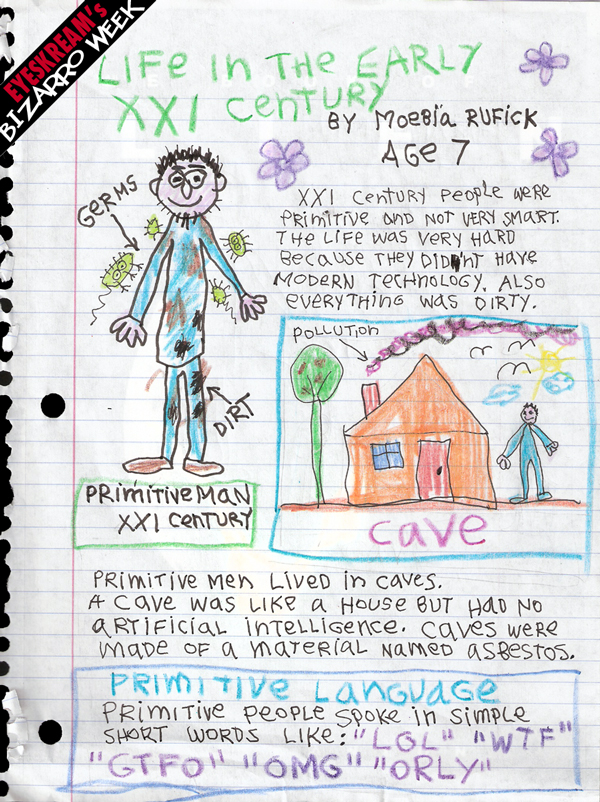 EYESKREAM's
BIZARRO WEEK
LIFE IN THE EARLY
XXI CENTURY
BY MOEBIA RUFICK
AGE 7
GERMS
XXI CENTURY PEOPLE WERE
PRIMITIVE AND NOT VERY SMART.
THE LIFE WAS VERY HARD
BECAUSE THEY DIDNT HAVE
MODERN TECHNOLOGY. ALSO
EVERYTHING WAS DIRTY.
POLLUTION
DIRT
PRIMITIVE MAN
XXI CENTURY
CAVE
PRIMITIVE MEN LIVED IN CAVES.
A CAVE WAS LIKE A HOUSE BUT HAD NO
ARTIFICIAL INTELLIGENCE. CAVES WERE
MADE OF A MATERIAL NAMED ASBESTOS.
PRIMITIVE LANGUAGE
PRIMITIVE PEOPLE SPOKE IN SIMPLE
SHORT WORDS LIKE: "LOL" "WTF"
"GTFO" "OMG" "ORLY"